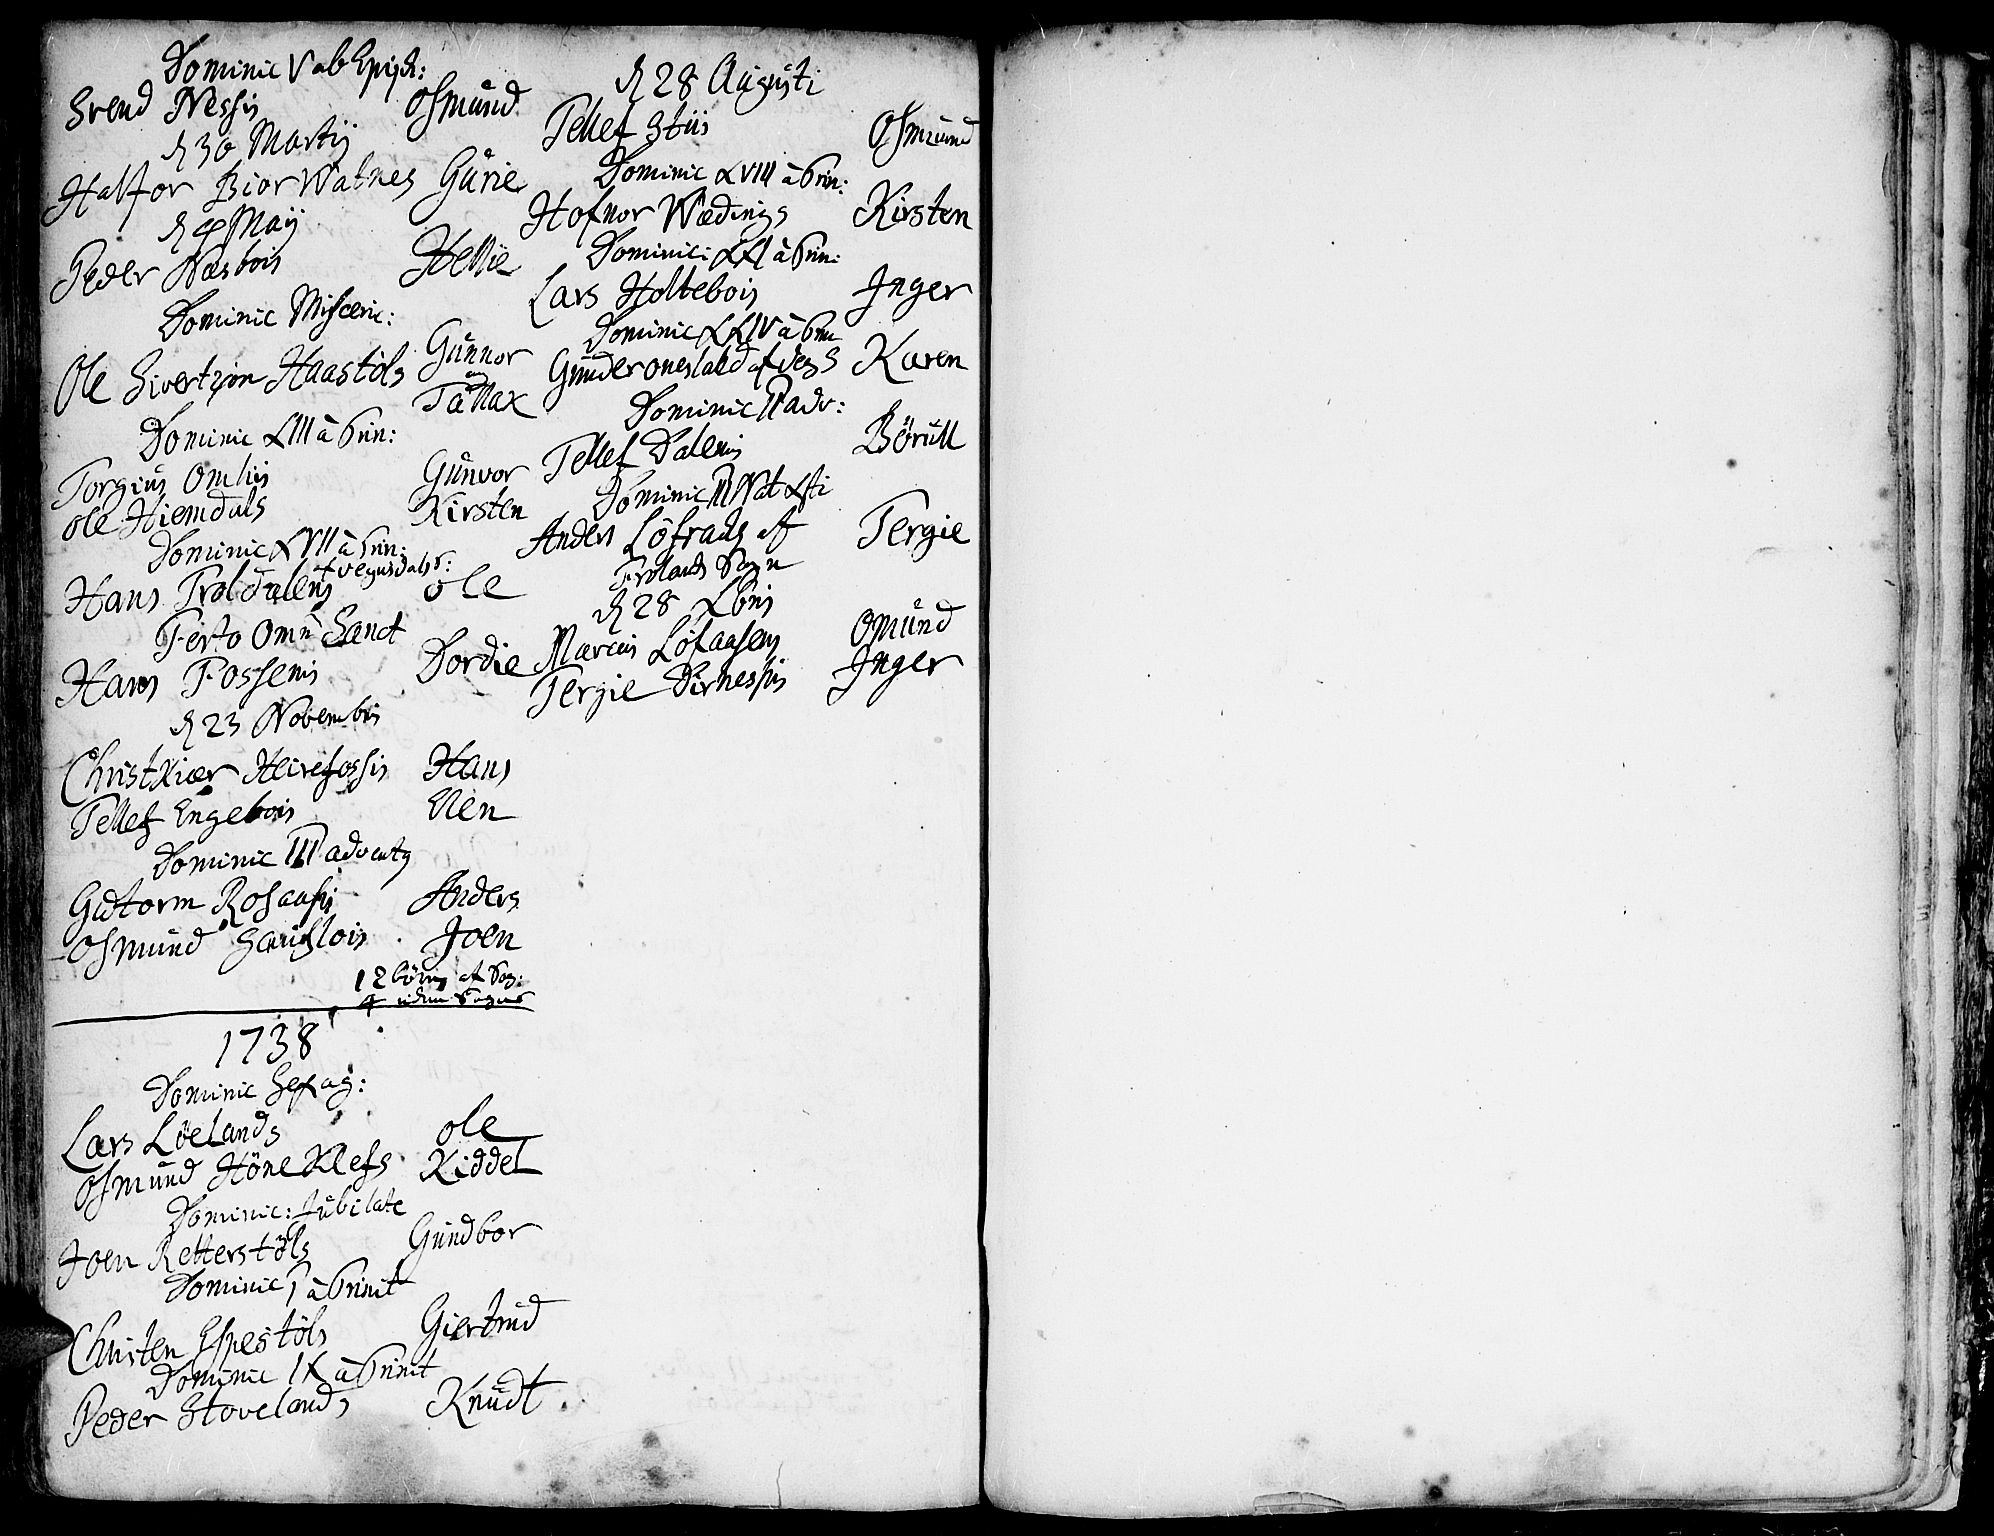 Dominic V ab Epiph:
Svend Nessis Osmund
d 30 Martij
Halfor BiorWatnes Gurie
d 9 Maij
Peder Næsbois Hellie
Dominic Misceric:
Ole Sivertzon Haastöls Gunnor
og
Tallax
Dominic XIII à Trin:
Torgius Omliis Gunvor
Ole Hiemdals Kirsten
Dominic XVII à Trin:
Hans Troldalens ole
Festo Omn Sanct
Hans Fossens Dordie
d 23 Novembris
Christ Kiær Heirefossis Hans
Tellef Engebois Elen
Dominic III adventg
Gutorm Rosaasis Anders
Osmund Joen
12 börn af Sog:
4 uden Sogns
1738
Dominic Sexag:
Lars Löelands ole
Osmund HöneKlefs Kiddel
Dominic: Jubilate
Joen Retterstöls Gundbor
Dominic I à Trinit
Christen Espestöls Giertrud
Dominic IX à Trinit
Peder Stovelands Knudt
d 28 Augusti
Tellef Stiis Osmund
Dominic XVIII à Trin:
Hofnor Wædings Kirsten
Dominic: XXI à Trin:
Lars Holtebois Inger
Dominic XXIV à Trin
Gunder Karen
Dominic II adv:
Tellef Dalens Börull
Dominic II Nat Xsti
Anders Löfrads af Tergie
Frolands Sogn
d 28 Xbris
Marcus Löfaasens Omund
Tergie Birnessis Inger